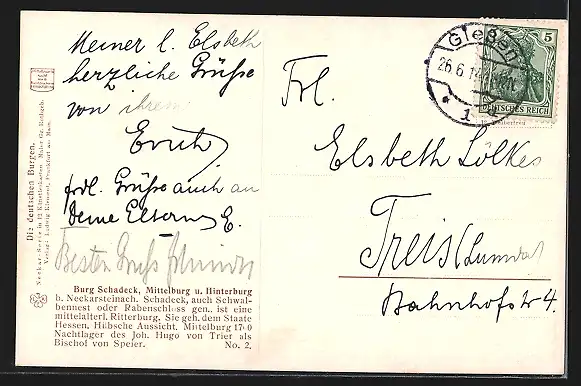 Meiner l. Elsbeth
herzliche Grüße
von ihrem
Erich
frdl. Grüße auch an
Deine Eltern E.
Besten Gruß
Die deutschen Burgen.
Neckar-Serie in 12 Künstlerkarten. Maler für Rothgeb.
Verlag: Ludwig Klement, Frankfurt am Main.
Burg Schadeck, Mittelburg u. Hinterburg
b. Neckarsteinach. Schadeck, auch Schwal-
bennest oder Rabenschloss gen. ist eine
mittelalterl. Ritterburg. Sie geh. dem Staate
Hessen. Hübsche Aussicht. Mittelburg 1700
Nachtlager des Joh. Hugo von Trier als
Bischof von Speier. No. 2.
Gießen
26.6.14
* 1
5
DEUTSCHES REICH
Frl.
Elsbeth Lölkes
Treis (Lumda)
Bahnhofstr 4.